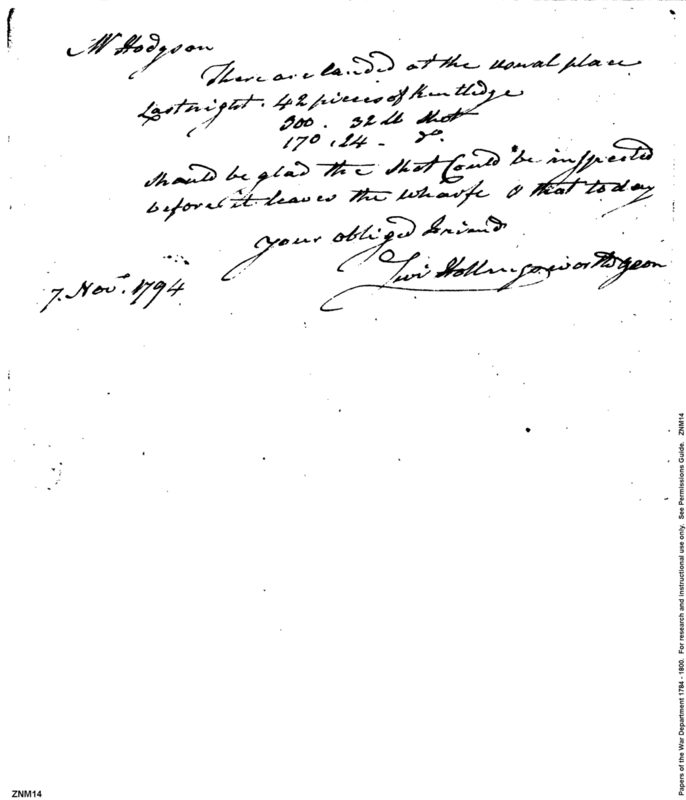 Mr Hodgson
There are landed at the usual place
Last night. 42 pieces of Kentledge
300. 32 lb shot
170. 24 - do.
should be glad the shot Could be inspected
before it leaves the wharfe & that to day
your obliged Friend
Levi Hollingsworth & Son
7. Novr. 1794
Papers of the War Department 1784 - 1800. For research and instructional use only. See Permissions Guide. ZNM14
ZNM14